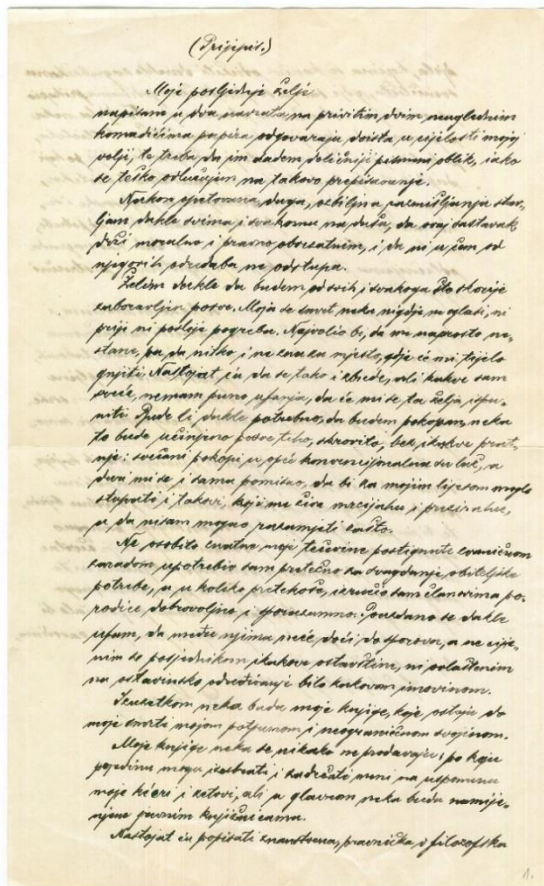 (Prijepis.)
Moje posljednje želje
napisane u dva navrata, na privitim dvim neuglednim
komadićima papira odgovaraju doista u cijelosti mojoj
volji, te treba da im dadem pismeni oblik, iako
se teško odlučujem na takovo prepisivanje.
Nakon opetovana, duga, ozbiljna razmišljanja stav-
ljam dakle svima i svakomu na dušu, da ovaj sastavak
drži moralno i pravno obvezatnim, i da ni u čem od
njegovih odredaba ne odstupa.
Želim dakle da budem od svih i svakoga što skorije
zaboravljen posve. Moja se smrt neka nigdje ne oglasi, ni
prije ni poslije pogreba. Najvolio bi, da me naprosto ne-
stane, pa da nitko i ne zna za mjesto, gdje će mi tijelo
gnjiti. Nastojat ću da se tako i zbude, ali kakve sam
sreće, nemam puno ufanja, da će mi se ta želja ispu-
niti. Bude li dakle potrebno, da budem pokopan, neka
to bude učinjeno posve tiho, skrovito, bez ikakve prat-
nje: svečani pokopi u opće konvencijonalna su laž, a
mi se i sama pomisao, da bi za mojim lijesom mogli
stupati i takovi, koji me mrcijahu i prezirahu,
a da nisam mogao razumjeti zašto.
Ne osobito znatne moje tečevine postignute
zaradom upotrebio sam pretežno za svagdanje obiteljske
potrebe, a u koliko pretekoše, izručio sam članovima po-
rodice dobrovoljno i sporazumno. Pouzdano se dakle
ufam, da među njima neće doći do sporova, a ne cije-
nim se posjednikom ikakove ostavštine, ni ovlaštenim
na ostavinsko određivanje bilo kakovom imovinom.
Izuzetkom neka budu moje knjige, koje ostaju do
moje smrti mojom potpunom i neograničenom svojinom.
Moje knjige neka se nikako ne prodavaju: po koju
pojedinu mogu izabrati i zadržati meni na uspomenu
moje kćeri i zetovi, ali u glavnom neka budu namije-
njene javnim knjižnicama.
Nastojat ću popisati znanstvena, pravnička, i filozofska
1.